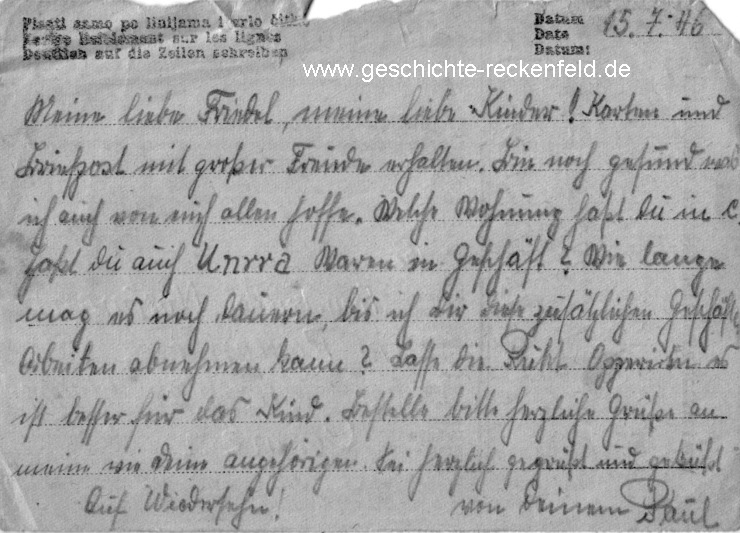 Pisati samo po linijama i vrlo čitko
sur les lignes
Deutlich auf die Zeilen schreiben
Datum
Date
Datum:
15.7.46
www.geschichte-reckenfeld.de
Meine liebe Friedel, meine liebe Kinder! Karten und
Briefpost mit großer Freude erhalten. Bin noch gesund was
ich auch von euch allen hoffe. Welche Wohnung hast du in C.
hast du auch Unrra Waren im Geschäft? Wie lange
mag es noch dauern, bis ich dir diese zusätzlichen Geschäfts
Arbeiten abnehmen kann? Lasse die es
ist besser für das Kind. Bestelle bitte herzliche Grüße an
meine wie deine angehörigen. Sei herzlich gegrüßt und geküßt
Auf Wiedersehn! von deinem Paul